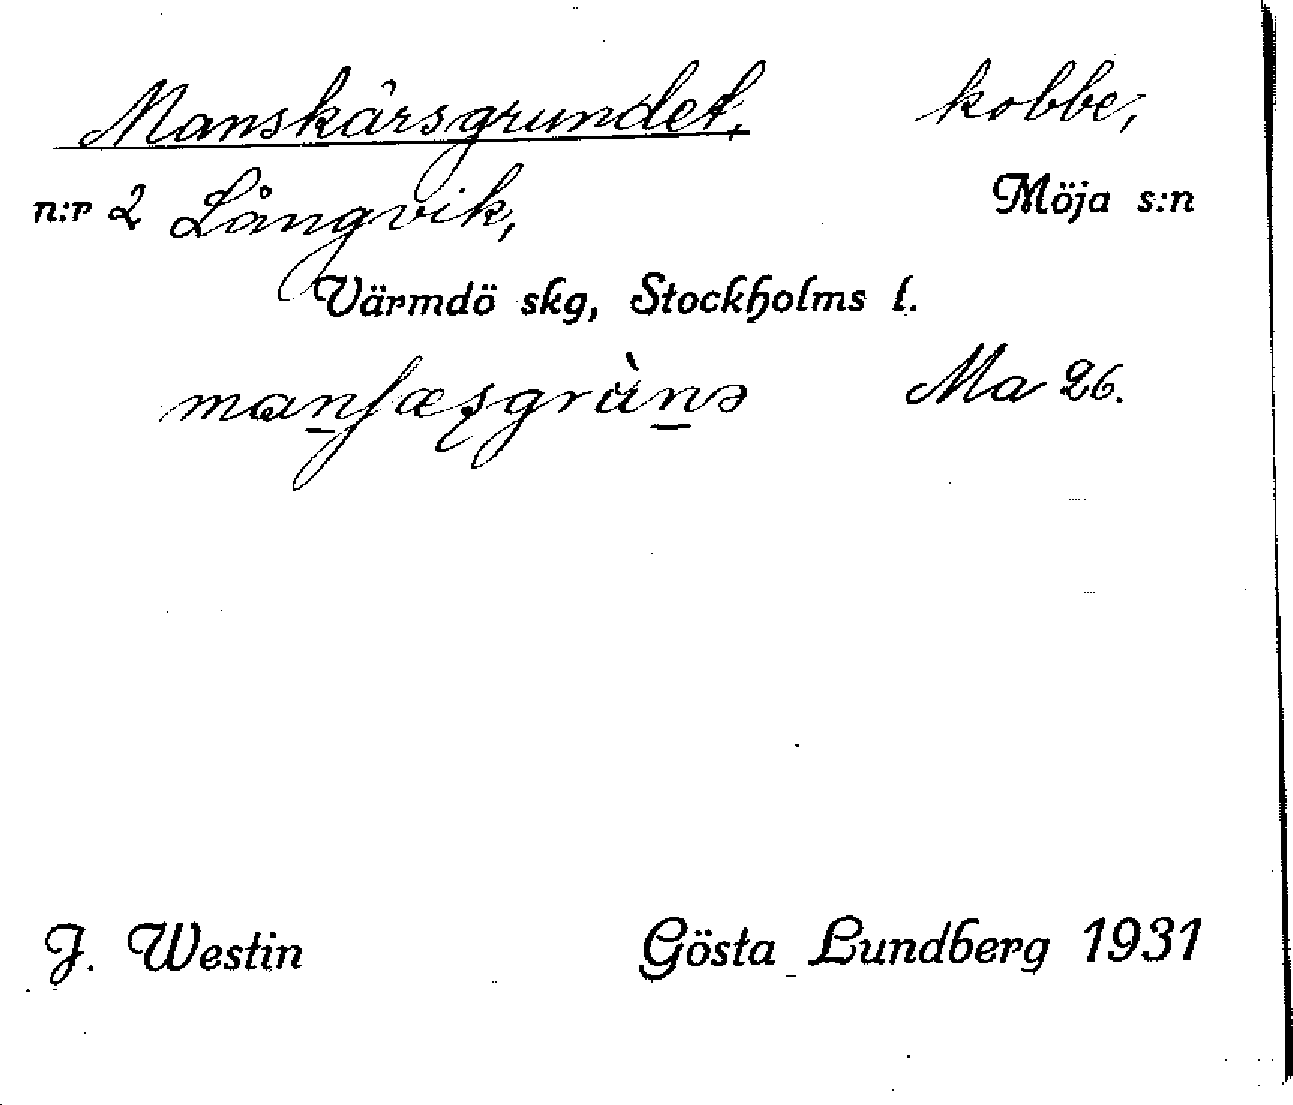 Manskärsgrundet, kobbe,
n:r 2 Långvik, Möja s:n
Värmdö skg, Stockholms l.
manʃæșgrùnə Ma 26.
J. Westin Gösta Lundberg 1931